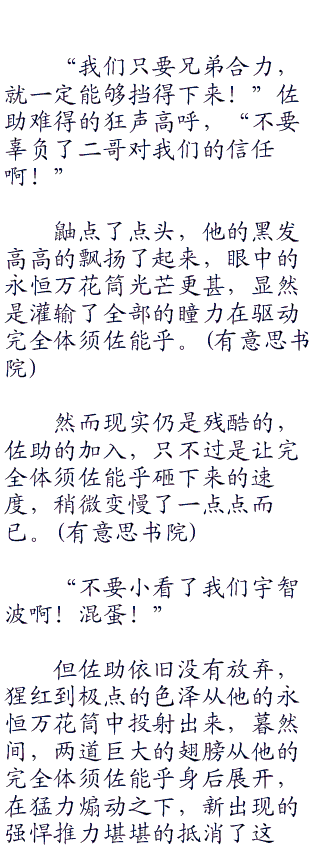 “我们只要兄弟合力，
就一定能够挡得下来！”佐
助难得的狂声高呼，“不要
辜负了二哥对我们的信任
啊！”
鼬点了点头，他的黑发
高高的飘扬了起来，眼中的
永恒万花筒光芒更甚，显然
是灌输了全部的瞳力在驱动
完全体须佐能乎。(有意思书
院)
然而现实仍是残酷的，
佐助的加入，只不过是让完
全体须佐能乎砸下来的速
度，稍微变慢了一点点而
已。(有意思书院)
“不要小看了我们宇智
波啊！混蛋！”
但佐助依旧没有放弃，
猩红到极点的色泽从他的永
恒万花筒中投射出来，暮然
间，两道巨大的翅膀从他的
完全体须佐能乎身后展开，
在猛力煽动之下，新出现的
强悍推力堪堪的抵消了这